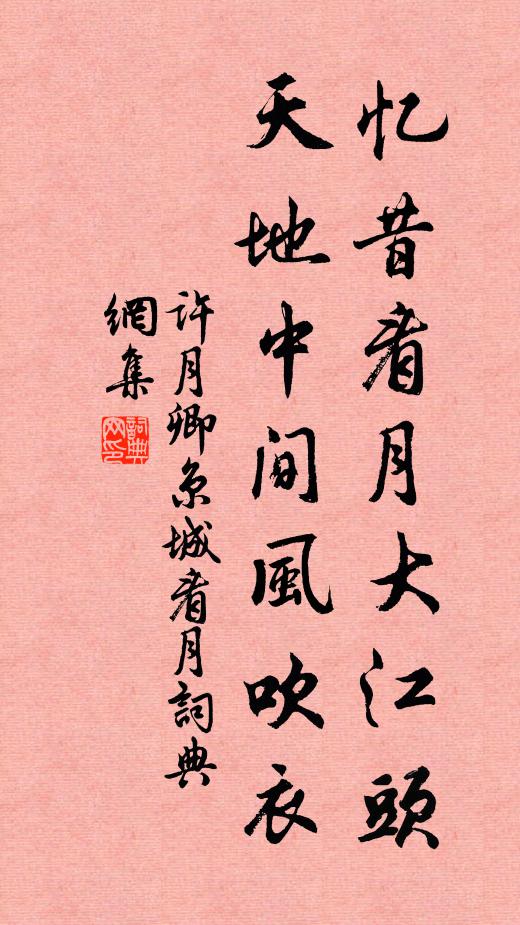 忆昔看月大江頭
天地中间風吹衣
许月卿京城看月詞典
網集
詞典网印